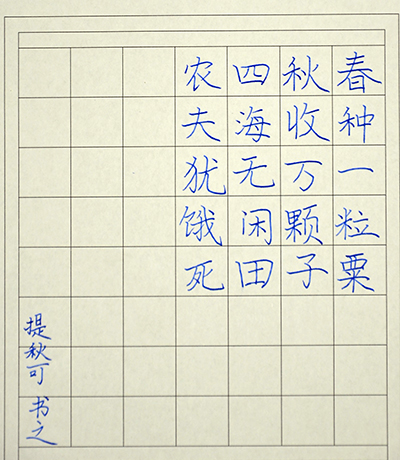 春种一粒粟
秋收万颗子
四海无闲田
农夫犹饿死
提秋可书之